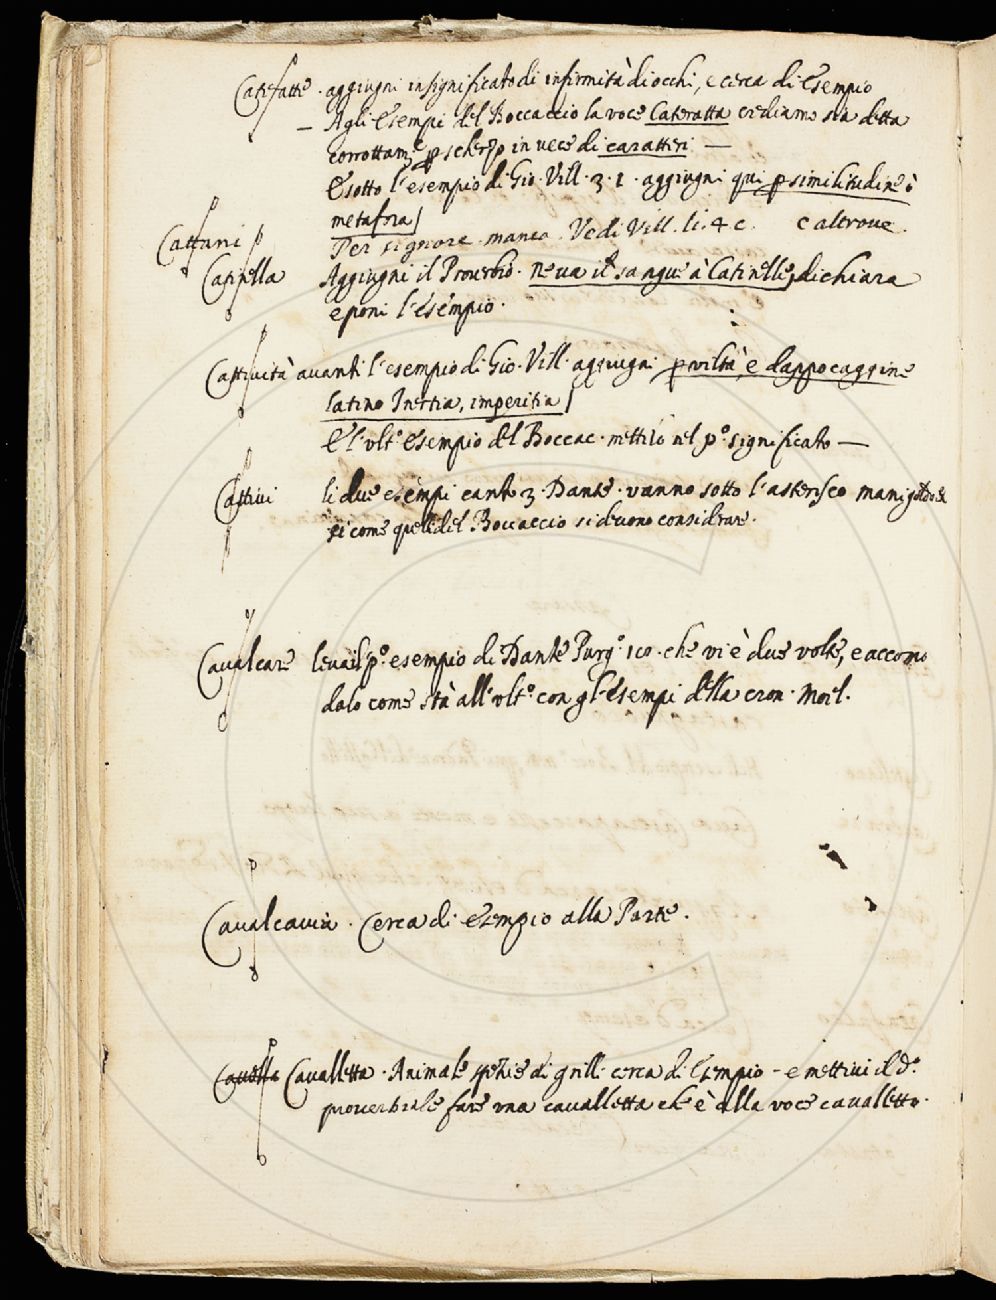 Cateratte · aggiugni in significato di infirmità di occhi, e cerca di Esempio
— Agli Esempi del Boccaccio la voce Cateratta crediamo sia detta
corrottam.e p scherzo in uece di caratteri —
E sotto l'esempio di Gio· Vill· 3· 1· aggiugni qui p similitudine ò
metafora
Cattani Per signore· manca· Vedi Vill· li· 4 c. e altroue·
Catinella Aggiugni il Prouerbio· Ne ua il sangue à Catinelle, dichiara
e poni l'esempio·
Cattiuità auanti l'esempio di Gio· Vill· aggiugni p uiltà, e dappocaggine
latino Inertia, imperitia
E l'vlt.o Esempio del Boccac· mettilo nel p.o significato —
Cattiui li due esempi canto 3· Dante· vanno sotto l'asterisco
si come quelli del Boccaccio si deuono considerare·
Caualcare leua il p.o esempio di Dante Purg.o che vi è due volte, e accomo
dalo come stà all'vlt.o con gl'Esempi della cron· Morl·
Caualcauia · Cerca di esempio alla Parte·
Caualletta · Animale spezie di grilli cerca di Esempio - e mettiui il d.o
prouerbiale fare vna caualletta che è alla voce caualletto·